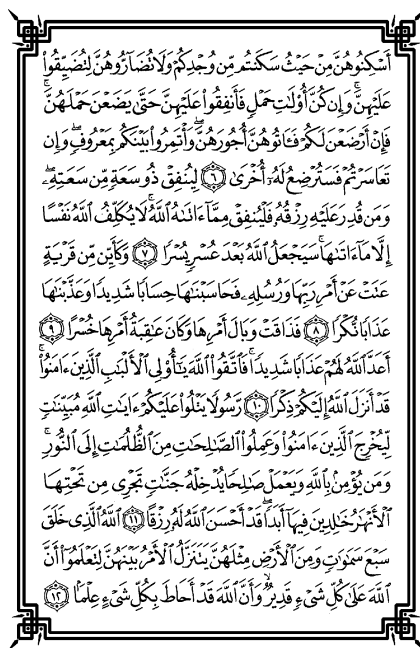 أَسْكِنُوهُنَّ مِنْ حَيْثُ سَكَنتُم مِّن وُجْدِكُمْ وَلَا تُضَآرُّوهُنَّ لِتُضَيِّقُوا۟
عَلَيْهِنَّ ۚ وَإِن كُنَّ أُو۟لَـٰتِ حَمْلٍ فَأَنفِقُوا۟ عَلَيْهِنَّ حَتَّىٰ يَضَعْنَ حَمْلَهُنَّ ۚ
فَإِنْ أَرْضَعْنَ لَكُمْ فَـَٔاتُوهُنَّ أُجُورَهُنَّ ۖ وَأْتَمِرُوا۟ بَيْنَكُم بِمَعْرُوفٍ ۖ وَإِن
تَعَاسَرْتُمْ فَسَتُرْضِعُ لَهُۥٓ أُخْرَىٰ ﴿٦﴾ لِيُنفِقْ ذُو سَعَةٍ مِّن سَعَتِهِۦ ۖ
وَمَن قُدِرَ عَلَيْهِ رِزْقُهُۥ فَلْيُنفِقْ مِمَّآ ءَاتَىٰهُ ٱللَّهُ ۚ لَا يُكَلِّفُ ٱللَّهُ نَفْسًا
إِلَّا مَآ ءَاتَىٰهَا ۚ سَيَجْعَلُ ٱللَّهُ بَعْدَ عُسْرٍ يُسْرًا ﴿٧﴾ وَكَأَيِّن مِّن قَرْيَةٍ
عَتَتْ عَنْ أَمْرِ رَبِّهَا وَرُسُلِهِۦ فَحَاسَبْنَـٰهَا حِسَابًا شَدِيدًا وَعَذَّبْنَـٰهَا
عَذَابًا نُّكْرًا ﴿٨﴾ فَذَاقَتْ وَبَالَ أَمْرِهَا وَكَانَ عَـٰقِبَةُ أَمْرِهَا خُسْرًا ﴿٩﴾
أَعَدَّ ٱللَّهُ لَهُمْ عَذَابًا شَدِيدًا ۖ فَٱتَّقُوا۟ ٱللَّهَ يَـٰٓأُو۟لِى ٱلْأَلْبَـٰبِ ٱلَّذِينَ ءَامَنُوا۟ ۚ
قَدْ أَنزَلَ ٱللَّهُ إِلَيْكُمْ ذِكْرًا ﴿١٠﴾ رَّسُولًا يَتْلُوا۟ عَلَيْكُمْ ءَايَـٰتِ ٱللَّهِ مُبَيِّنَـٰتٍ
لِّيُخْرِجَ ٱلَّذِينَ ءَامَنُوا۟ وَعَمِلُوا۟ ٱلصَّـٰلِحَـٰتِ مِنَ ٱلظُّلُمَـٰتِ إِلَى ٱلنُّورِ ۚ
وَمَن يُؤْمِنۢ بِٱللَّهِ وَيَعْمَلْ صَـٰلِحًا يُدْخِلْهُ جَنَّـٰتٍ تَجْرِى مِن تَحْتِهَا
ٱلْأَنْهَـٰرُ خَـٰلِدِينَ فِيهَآ أَبَدًا ۖ قَدْ أَحْسَنَ ٱللَّهُ لَهُۥ رِزْقًا ﴿١١﴾ ٱللَّهُ ٱلَّذِى خَلَقَ
سَبْعَ سَمَـٰوَٰتٍ وَمِنَ ٱلْأَرْضِ مِثْلَهُنَّ يَتَنَزَّلُ ٱلْأَمْرُ بَيْنَهُنَّ لِتَعْلَمُوٓا۟ أَنَّ
ٱللَّهَ عَلَىٰ كُلِّ شَىْءٍ قَدِيرٌ وَأَنَّ ٱللَّهَ قَدْ أَحَاطَ بِكُلِّ شَىْءٍ عِلْمًۢا ﴿١٢﴾